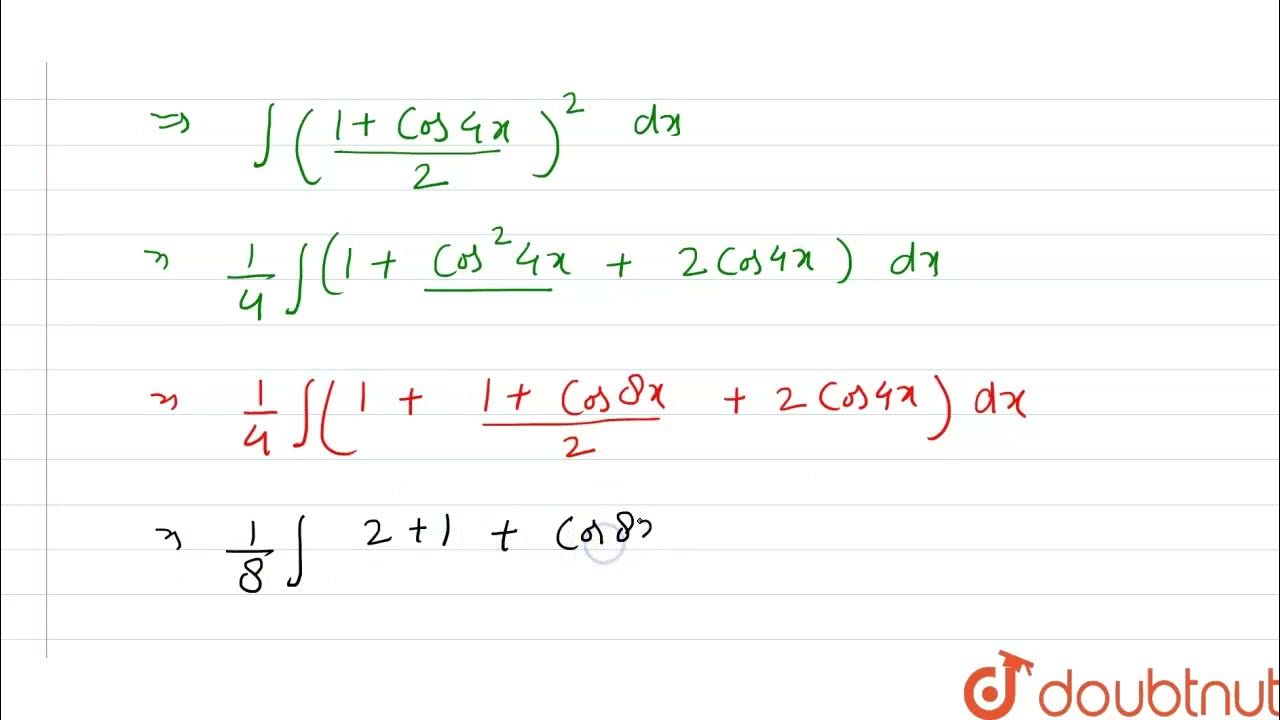 ⇒ ∫ ( (1 + Cos 4x) / 2 )² dx
⇒ 1/4 ∫ ( 1 + Cos² 4x + 2 Cos 4x ) dx
⇒ 1/4 ∫ ( 1 + (1 + Cos 8x) / 2 + 2 Cos 4x ) dx
⇒ 1/8 ∫ 2 + 1 + Cos 8
doubtnut